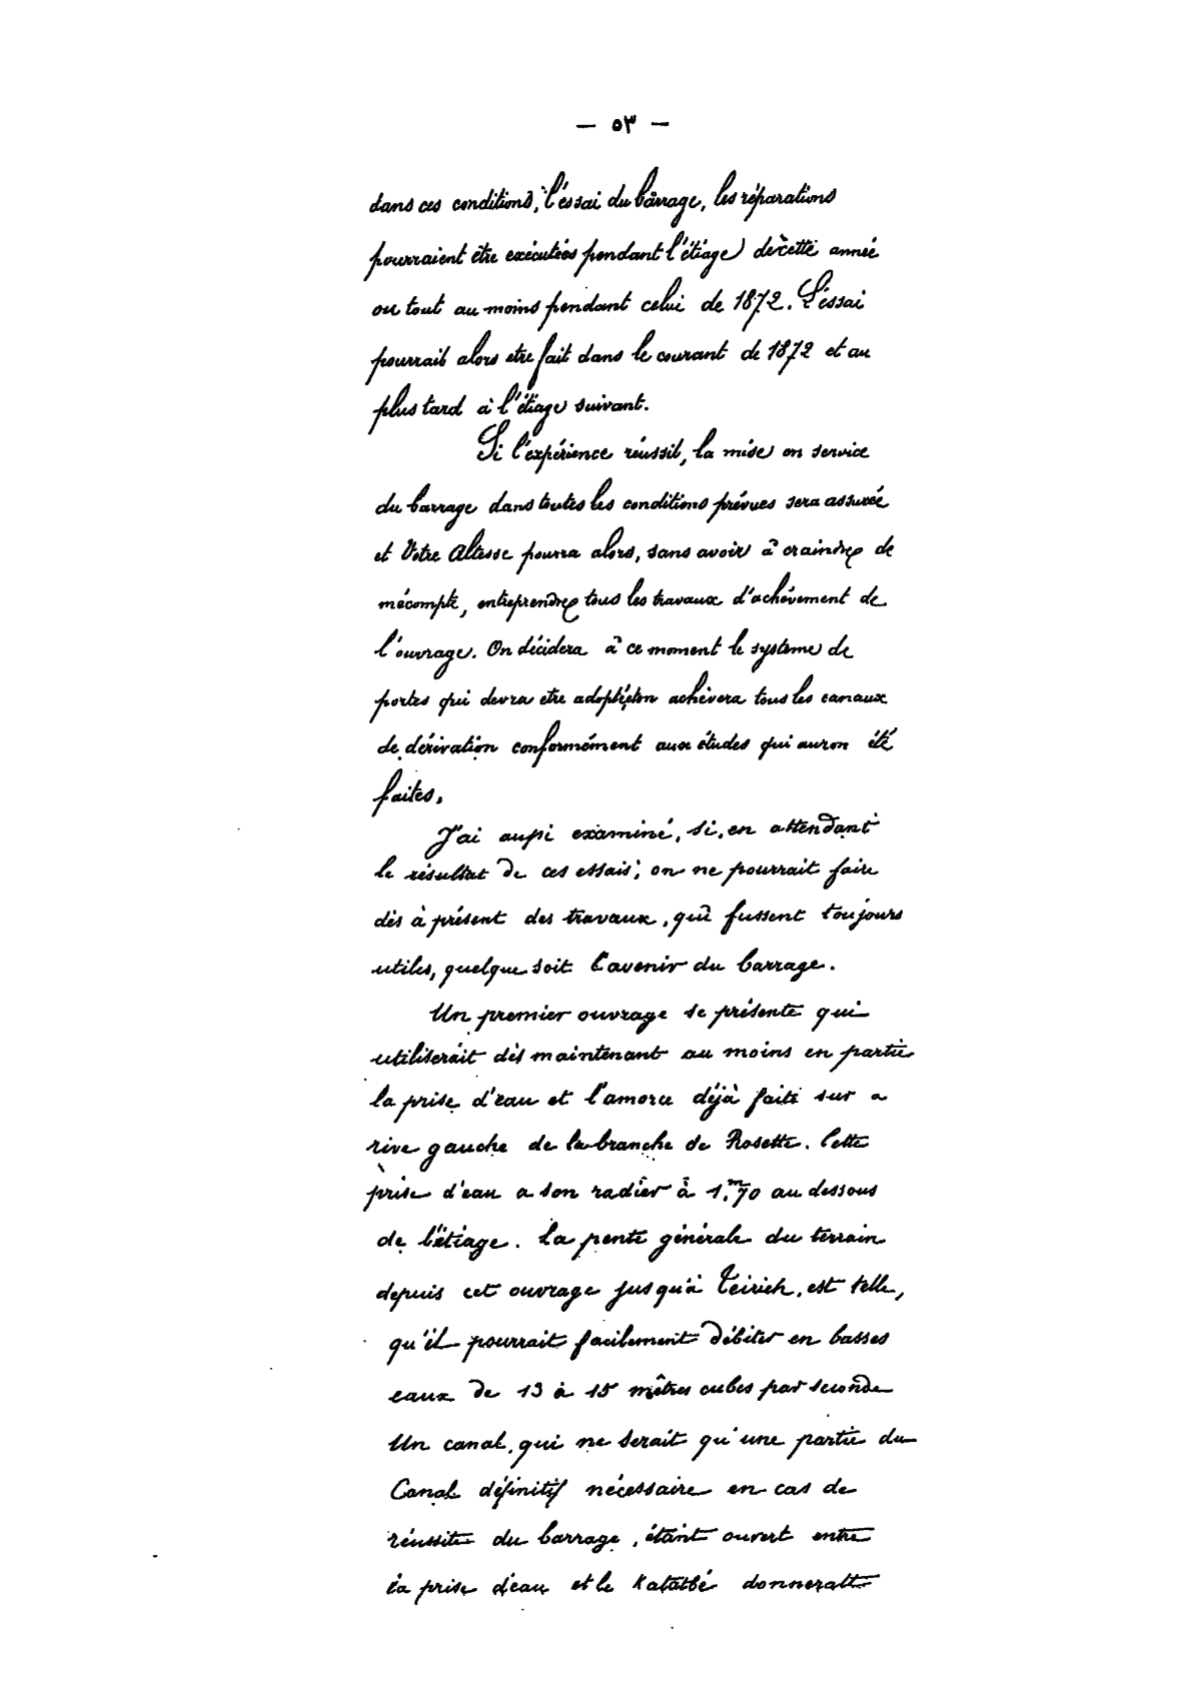 — ٥٣ —
dans ces conditions, l'éssai du bârrage, les réparations
pourraient être exécutées pendant l'étiage de cette année
ou tout au moins pendant celui de 1872. L'éssai
pourrait alors etre fait dans le courant de 1872 et au
plus tard à l'étiage suivant.
Si l'expérience réussit, la mise en service
du barrage dans toutes les conditions prévues sera assurée
et Votre Altesse pourra alors, sans avoir à craindre de
mécompte, entreprendre tous les travaux d'achévement de
l'ouvrage. On décidera à ce moment le systeme de
portes qui devra etre adopté, et on achèvera tous les canaux
de dérivation conformément aux études qui auron été
faites.
J'ai aussi examiné, si, en attendant
le résultat de ces essais, on ne pourrait faire
dès à présent des travaux, qui fussent toujours
utiles, quelque soit l'avenir du barrage.
Un premier ouvrage se présente qui
utiliserait dès maintenant au moins en partie
la prise d'eau et l'amorce déjà faite sur a
rive gauche de la branche de Rosette. Cette
prise d'eau a son radier à 1.ᵐ70 au dessous
de l'étiage. La pente générale du terrain
depuis cet ouvrage jusqu'à Teirieh, est telle,
qu'il pourrait facilement débiter en basses
eaux de 13 à 15 mètres cubes par seconde
Un canal, qui ne serait qu'une partie du
Canal définitif nécessaire en cas de
réussite du barrage, étant ouvert entre
la prise d'eau et le Katatbé donneratt